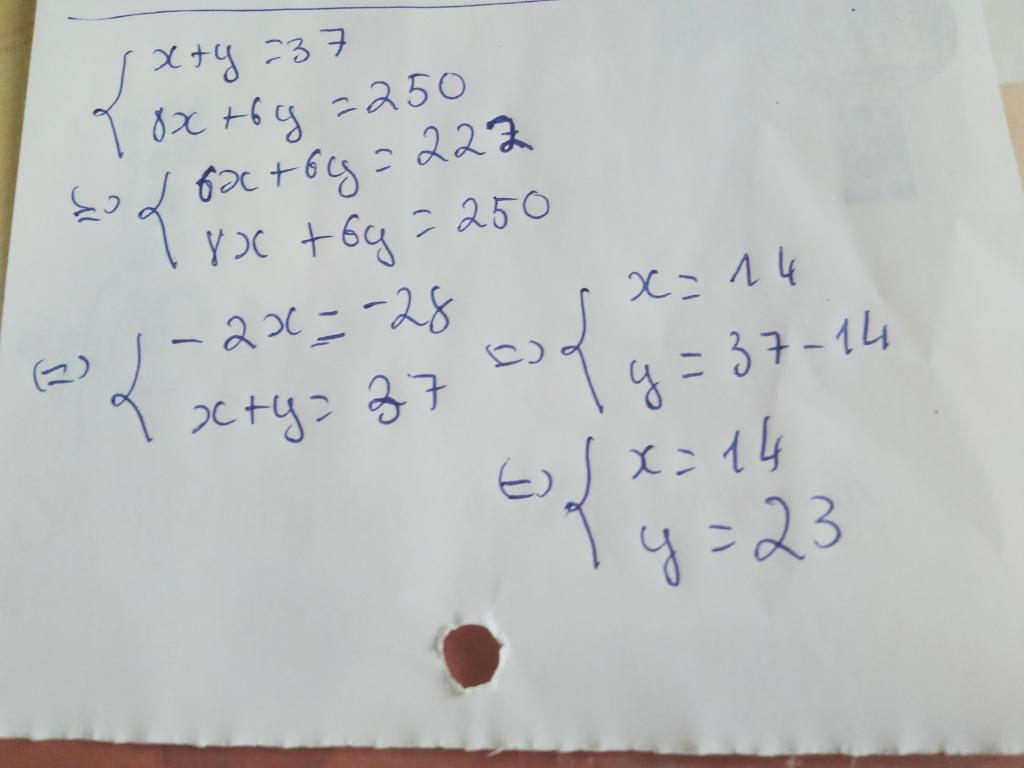 x+y=37
8x+6y=250
<=> 6x+6y=222
8x+6y=250
<=> -2x=-28
x+y=37
<=> x=14
y=37-14
<=> x=14
y=23